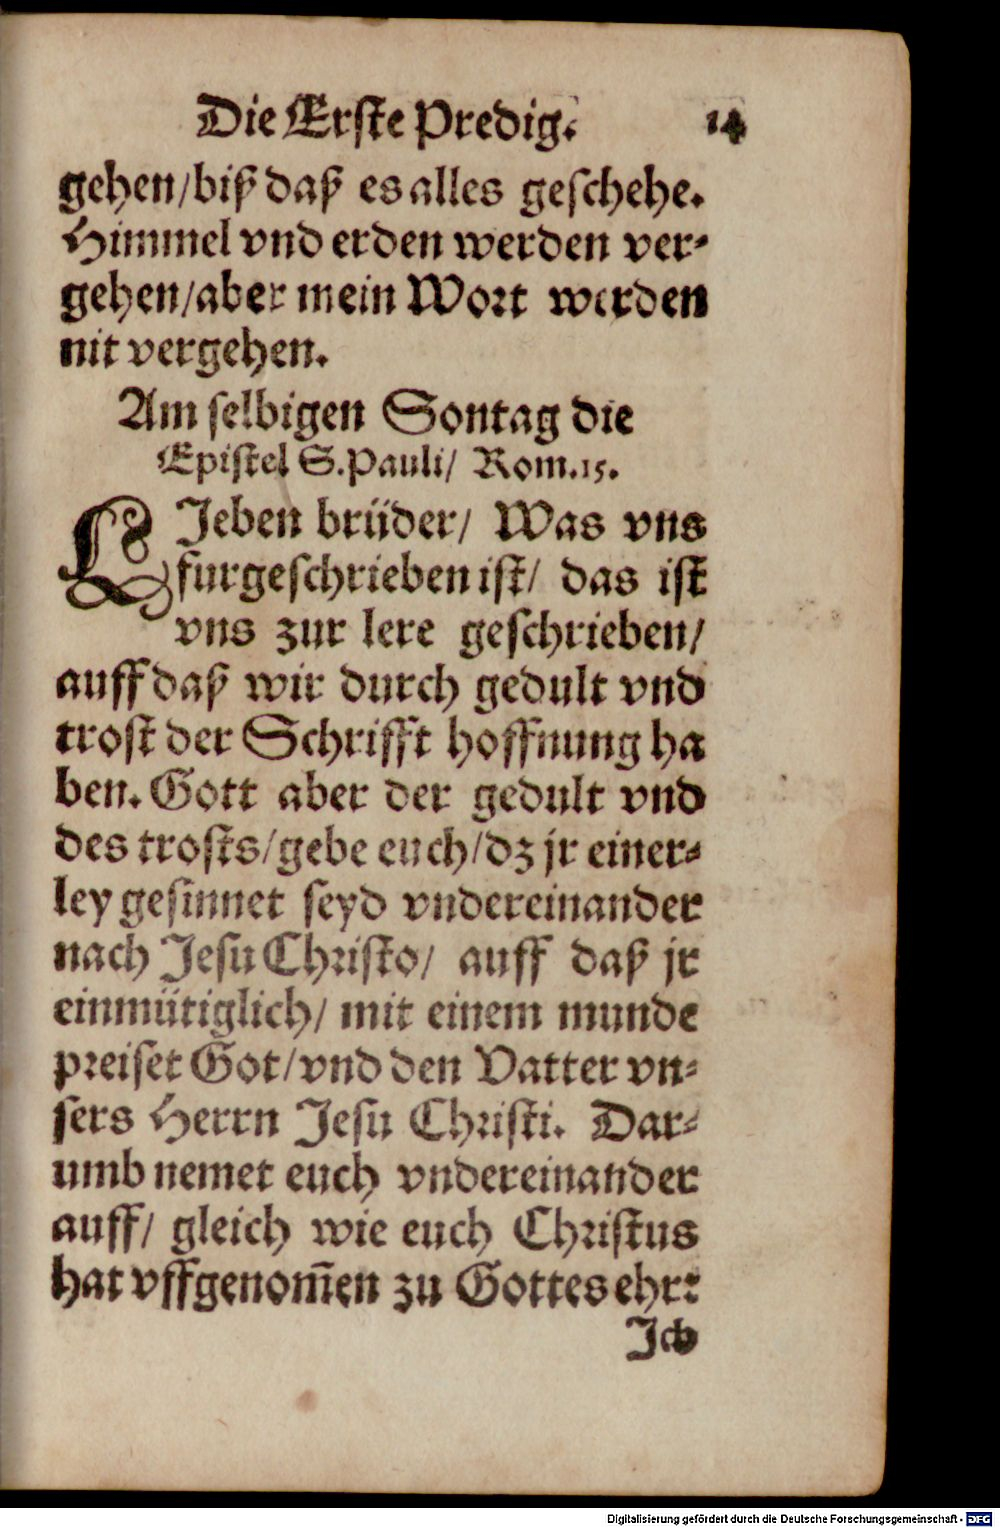 Die Erste Predig. 14
gehen/biß daß es alles geschehe.
Himmel vnd erden werden ver-
gehen/aber mein Wort werden
nit vergehen.
Am selbigen Sontag die
Epistel S.Pauli/ Rom.15.
LJeben brüder/ Was vns
furgeschrieben ist/ das ist
vns zur lere geschrieben/
auff daß wir durch gedult vnd
trost der Schrifft hoffnung ha
ben. Gott aber der gedult vnd
des trosts/gebe euch/dz jr einer-
ley gesinnet seyd vndereinander
nach Jesu Christo/ auff daß jr
einmütiglich/ mit einem munde
preiset Got/vnd den Vatter vn-
sers Herrn Jesu Christi. Dar-
umb nemet euch vndereinander
auff/ gleich wie euch Christus
hat vffgenom̃en zu Gottes ehr:
Jch
Digitalisierung gefördert durch die Deutsche Forschungsgemeinschaft - DFG